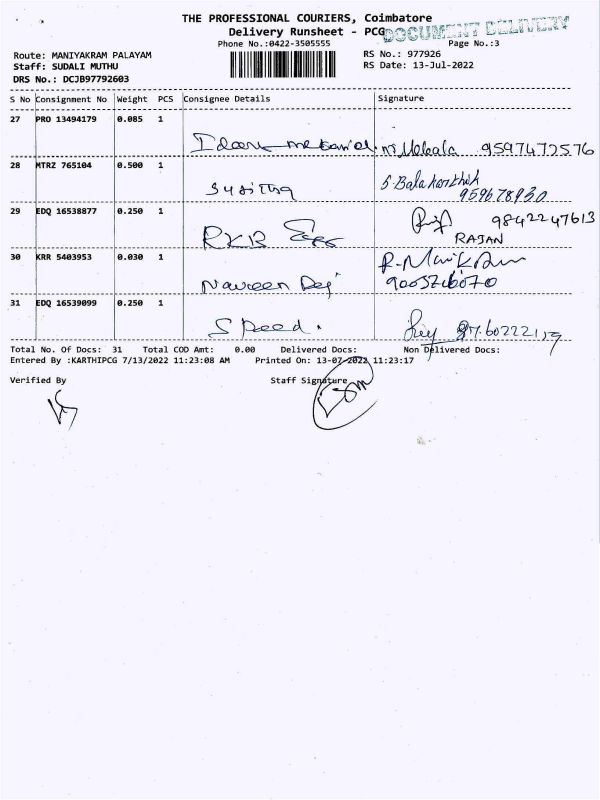 THE PROFESSIONAL COURIERS, Coimbatore
Delivery Runsheet - PCG
DOCUMENT DELIVERY
Phone No.:0422-3505555
Page No.:3
Route: MANIYAKRAM PALAYAM
RS No.: 977926
Staff: SUDALI MUTHU
RS Date: 13-Jul-2022
DRS No.: DCJB97792603
S No Consignment No Weight PCS Consignee Details Signature
27 PRO 13494179 0.085 1
9597472576
28 MTRZ 765104 0.500 1
S. Balakarthik
29 EDQ 16538877 0.250 1
9842247613
RKR
RAJAN
30 KRR 5403953 0.030 1
Naveen
31 EDQ 16539099 0.250 1
Speed.
Total No. Of Docs: 31 Total COD Amt: 0.00 Delivered Docs: Non Delivered Docs:
Entered By :KARTHIPCG 7/13/2022 11:23:08 AM Printed On: 13-07-2022 11:23:17
Verified By Staff Signature